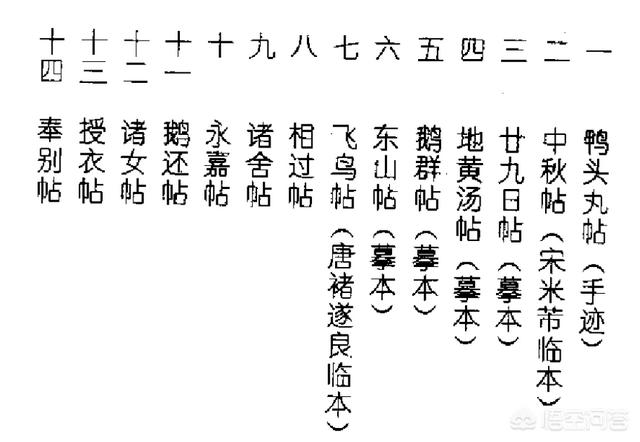 一 鸭头丸帖（手迹）
二 中秋帖（宋米芾临本）
三 廿九日帖（摹本）
四 地黄汤帖（摹本）
五 鹅群帖（摹本）
六 东山帖（摹本）
七 飞鸟帖（唐褚遂良临本）
八 相过帖
九 诸舍帖
十 永嘉帖
十一 鹅还帖
十二 诸女帖
十三 授衣帖
十四 奉别帖
悟空问答